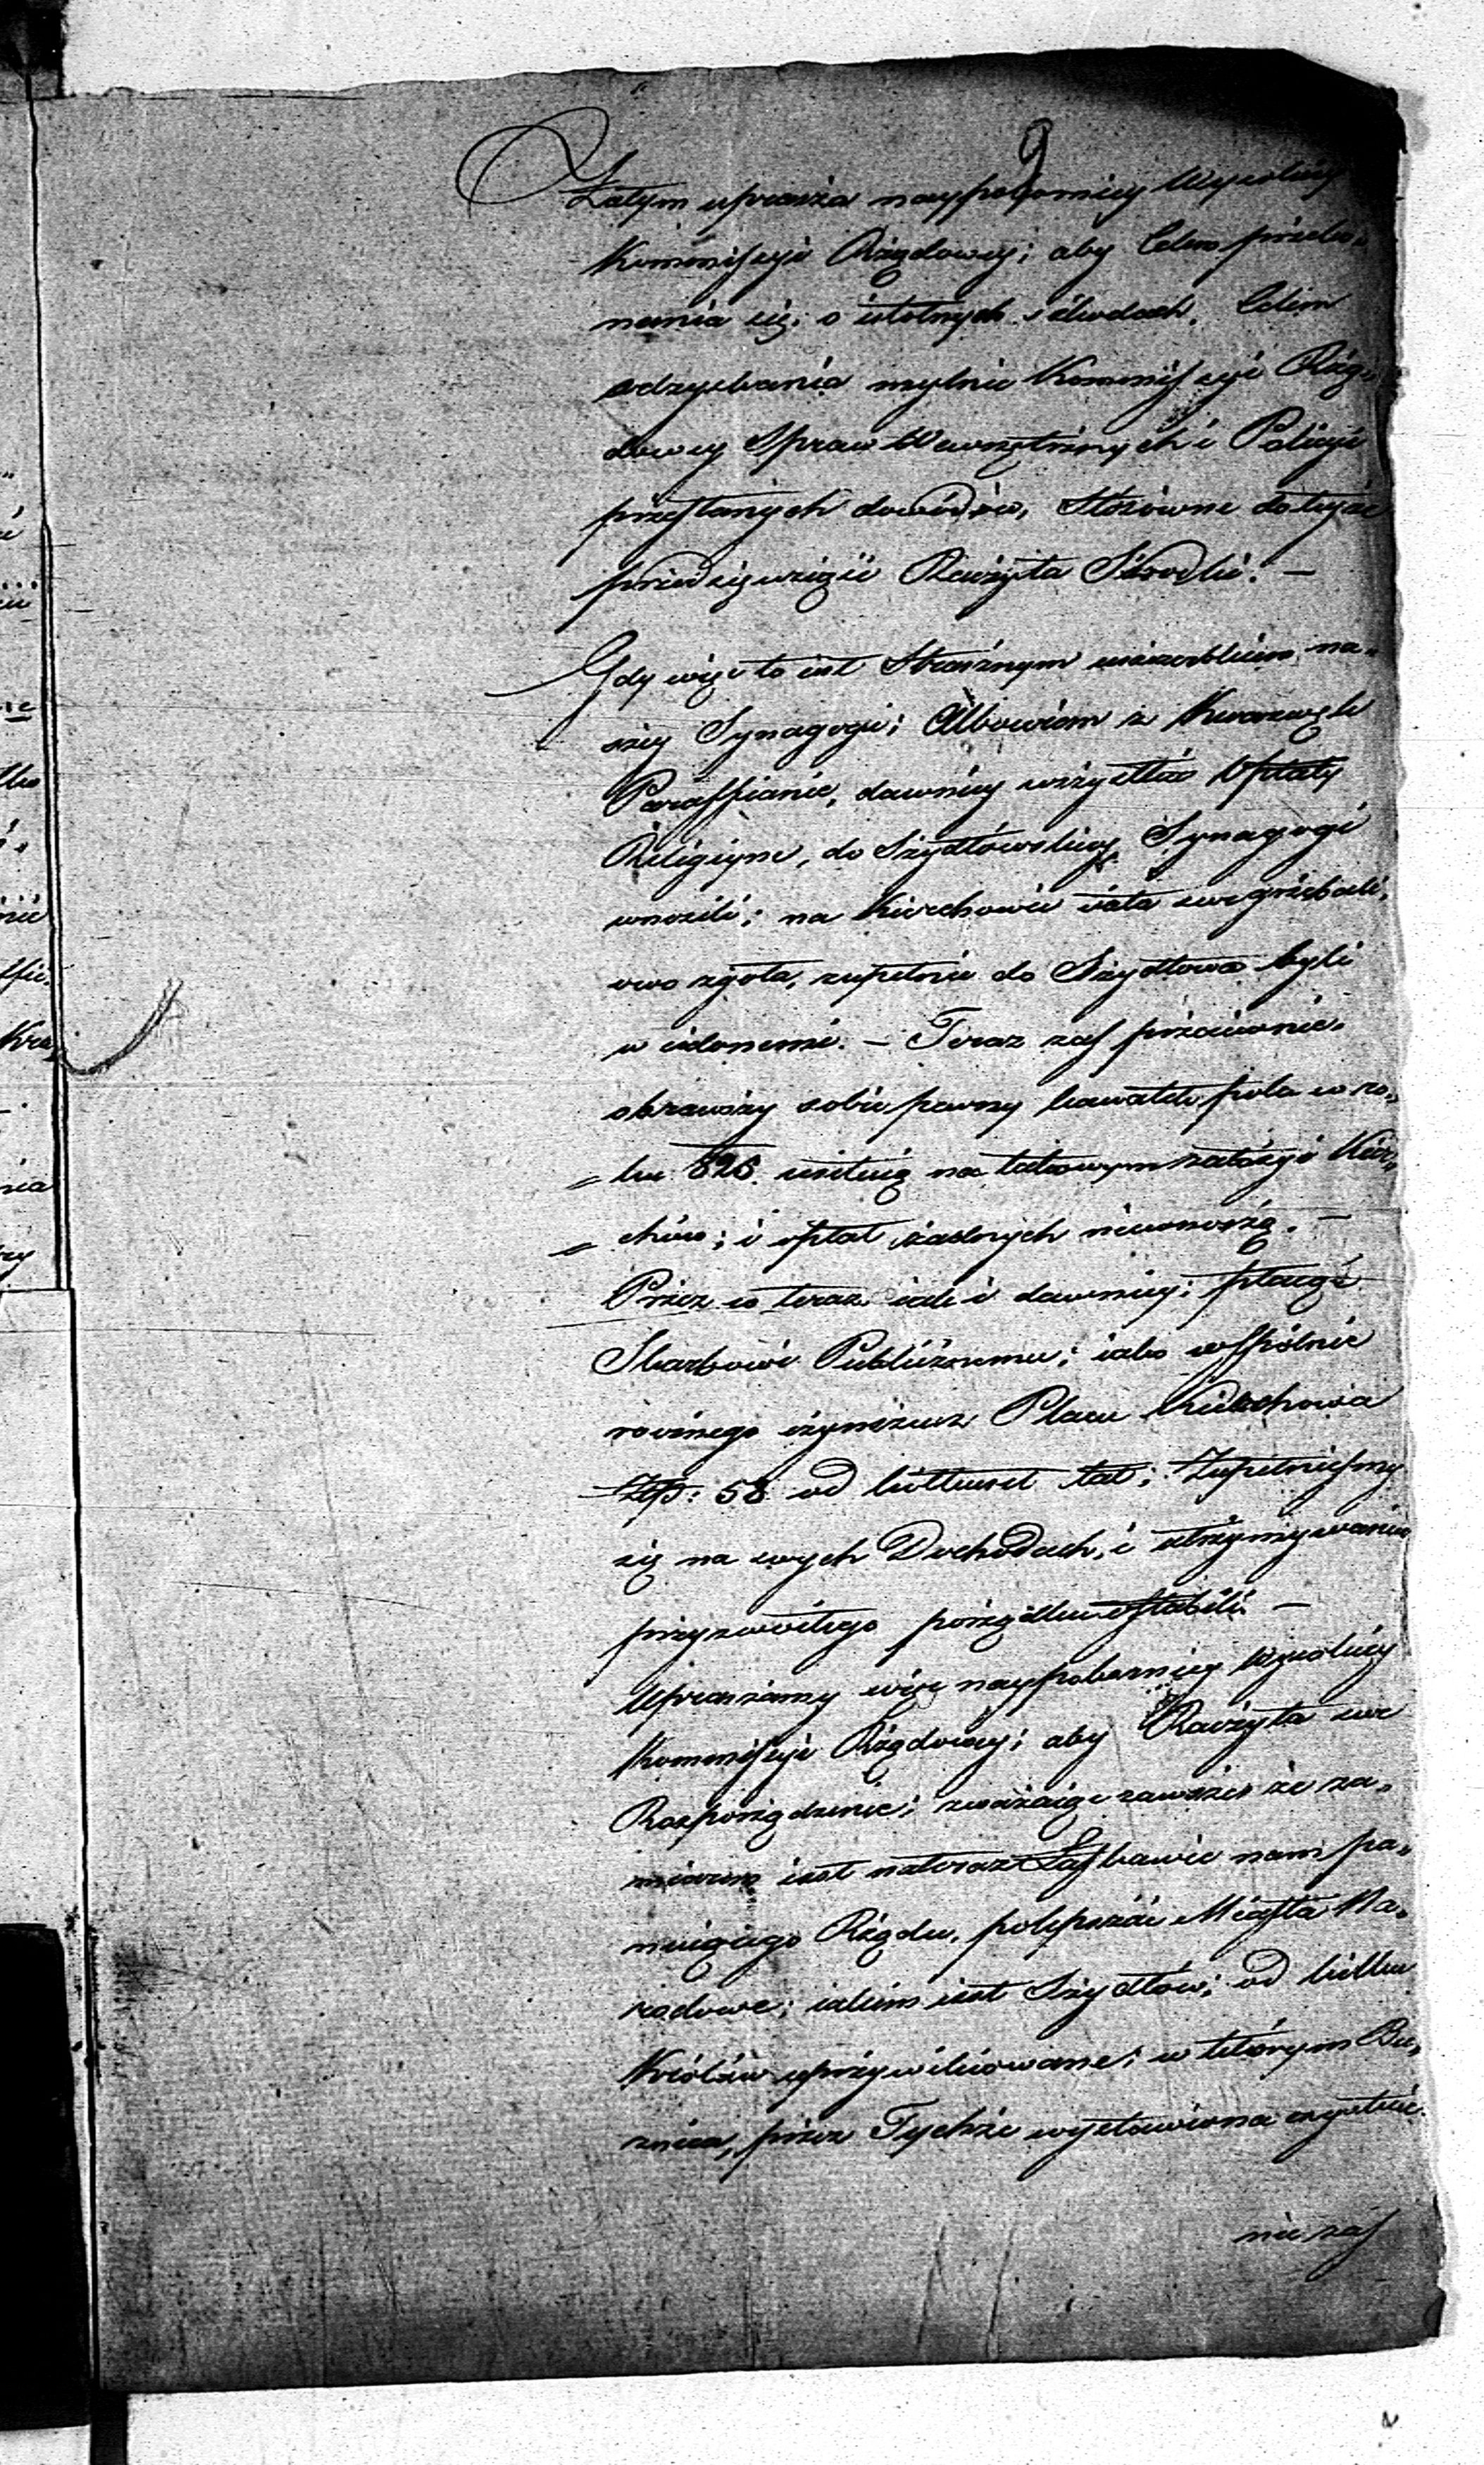 9
Zatym uprasza naypokorniey Wysokiey
Kommissyi Rządowey; aby Celem przeko„
nania się, o istotnych schodach, Celem
odzyskania mylnie Kommissyi Rzą„
dowey Spraw Wewnętrznych i Policyi
przesłanych dowodów, Stósowne do tego
przedsięwziąść Raczyła Srodki. —
Gdy więc to iest Strasznym uszczerbkiem na„
szey Synagogi; Albowiem z Kurozwęk
Paraffianie, dawniey wszystkie Opłaty
Religiyne, do Szydłowskiey Synagogi
wnosili; na Kirchowie ciała swe grzebali,
owo zgoła, zupełnie do Szydłowa byli
wcielonemi. — Teraz zaś przeciwnie
obrawszy sobie pewny kawałek pola w ro„
ku 826. usiłuią na takowym założyć Kir„
chów; i opłat żadnych niewnoszą. —
Przez co teraz iak i dawniey; płacąc
Skarbowi Publicznemu; iako wspólnie
rocznego czynszu z Placu Kirchowa
Złp: 58 od kilkuset lat; Zupełniesmy
się na swych Dochodach, i utrzymywaniu
przyzwoitego porządku osłabili —
Upraszamy więc naypokorniey Wysokiey
Kommissyi Rządowey; aby Raczyła swe
Rozporządzenie; zważaiąc zawsze że za„
miarem iest nateraz Łaskawie nam pa„
nuiącego Rządu, polepszać Miasta Na„
rodowe; iakim iest Szydłów; od kilku
Królów uprzywileiowane; w którym Bu„
żnica, przez Tychże wystawiona exystuie.
nie zaś